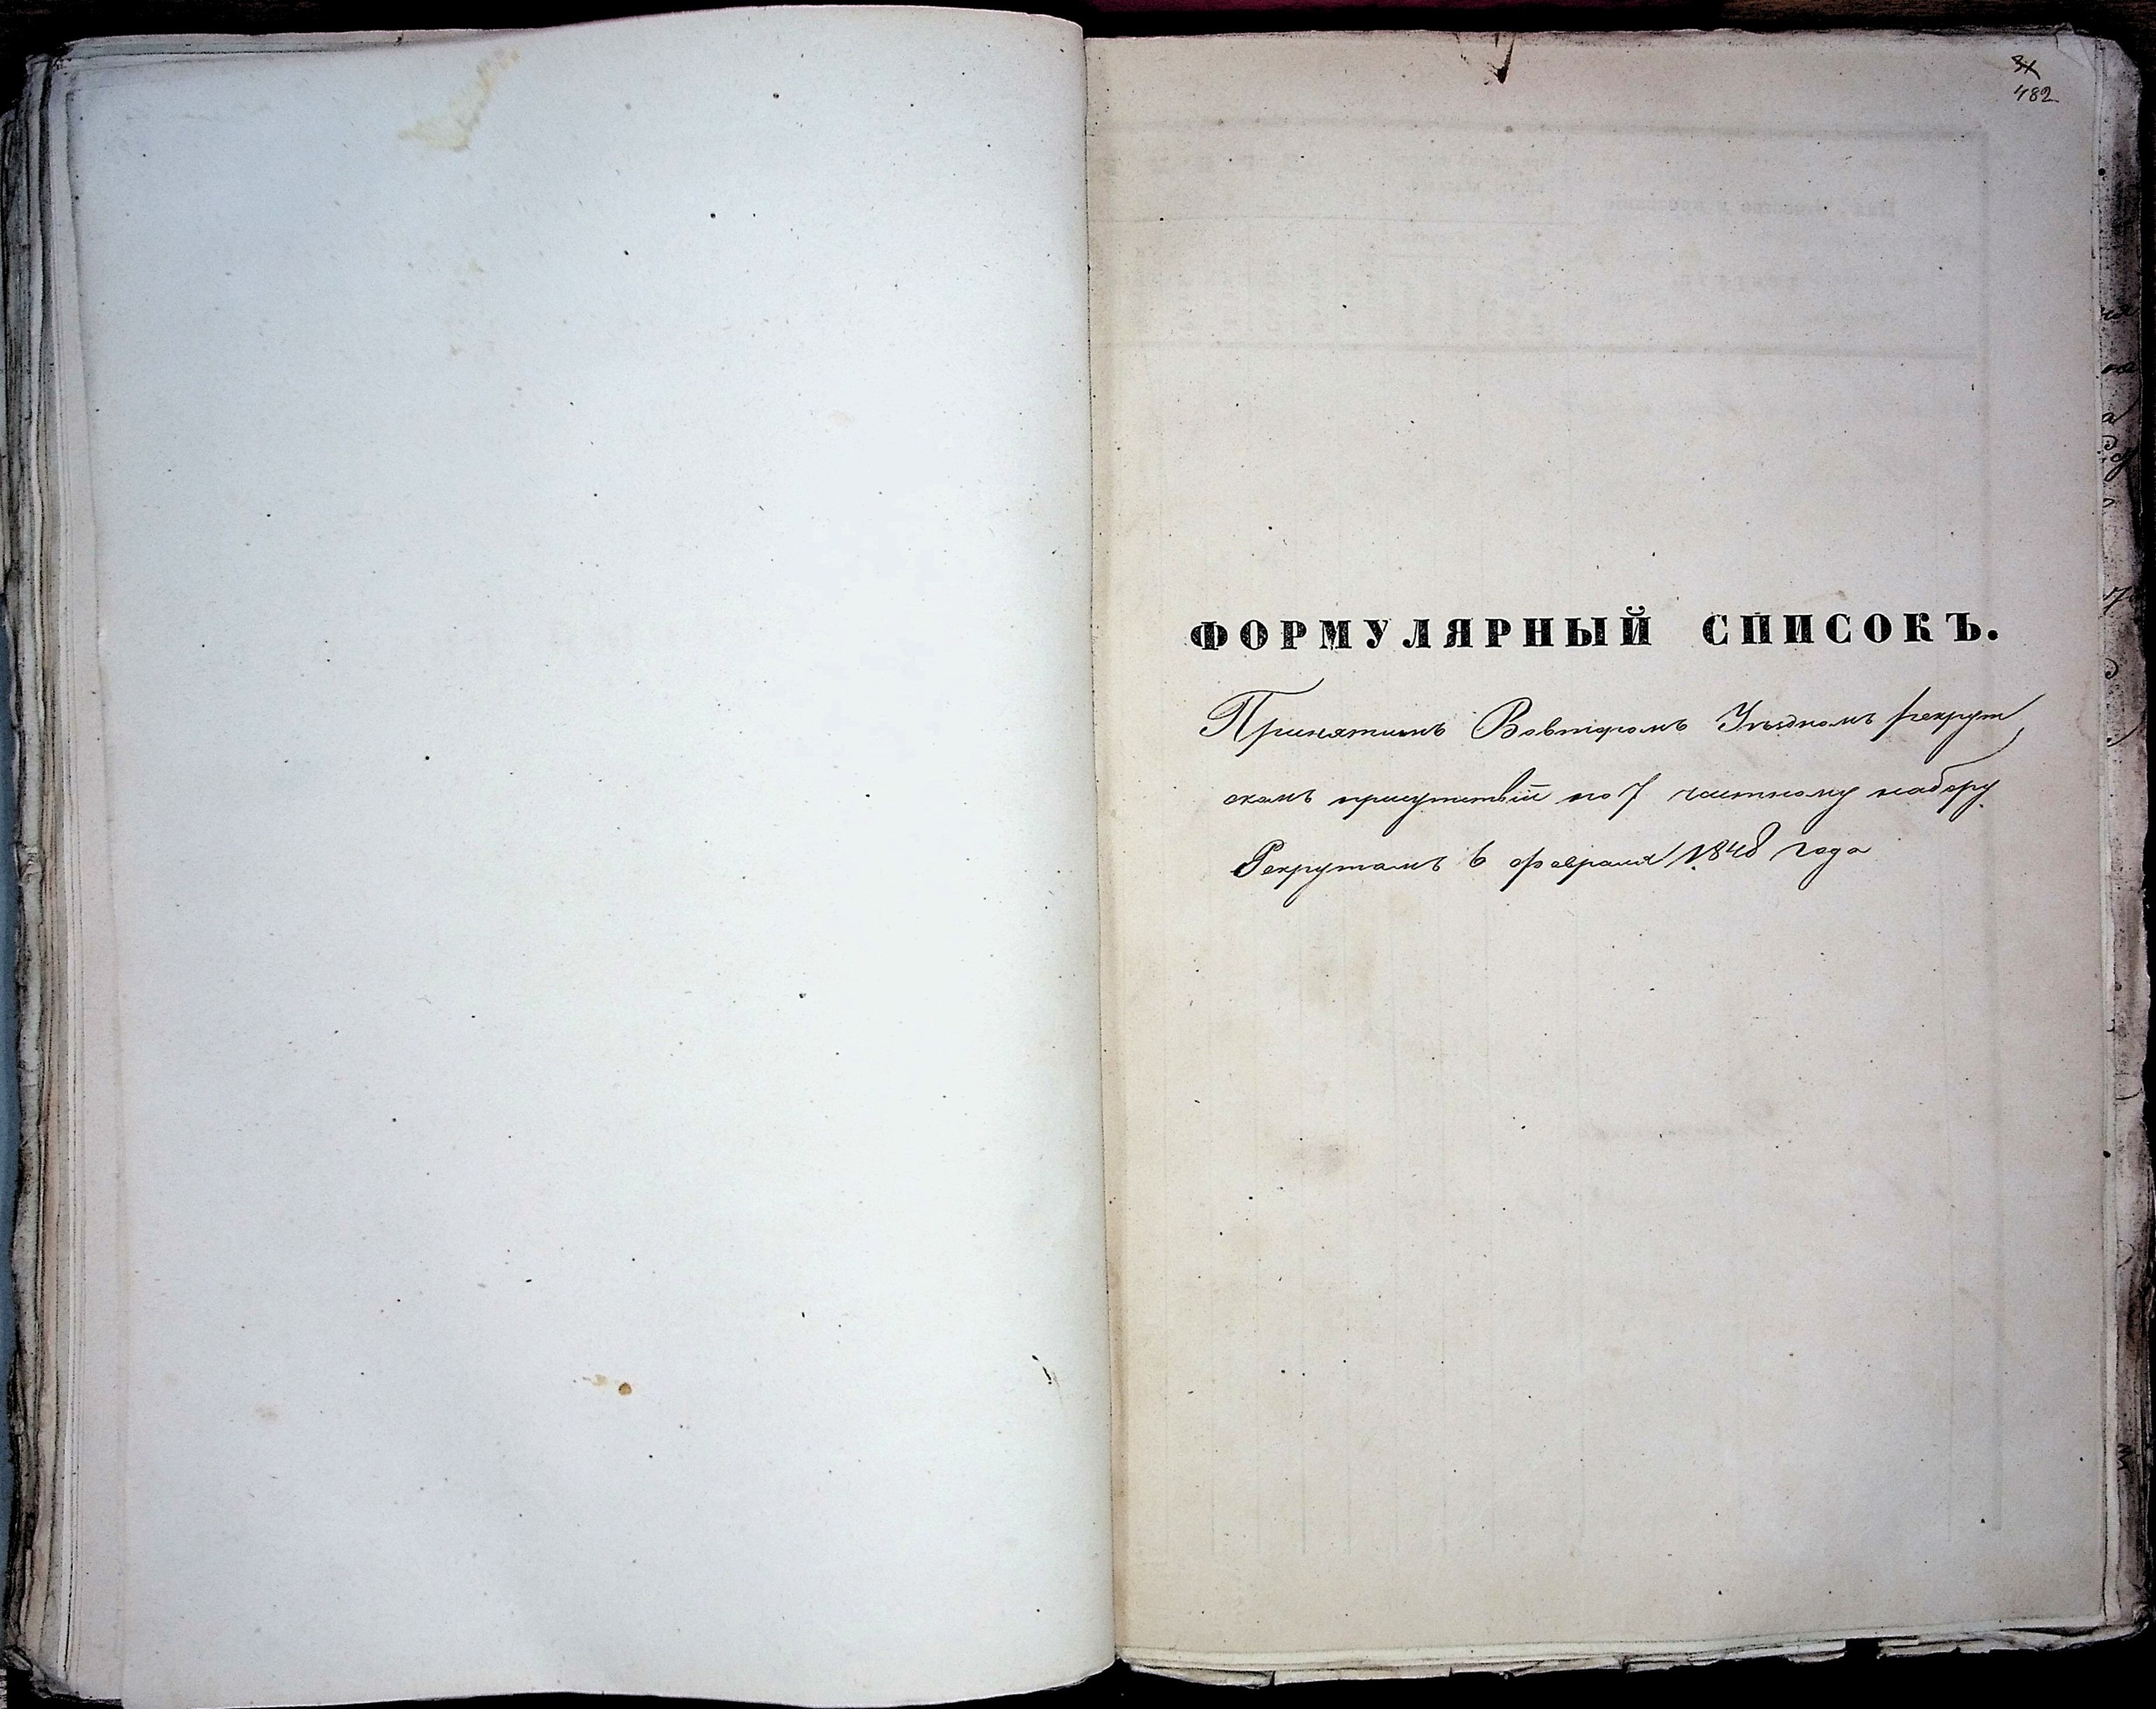 482
ФОРМУЛЯРНЫЙ СПИСОКЪ.
Принятымъ Вовторомъ Уѣздномъ рекрут
скомъ присутствіи по 7 частному набору
Рекрутамъ 6 февраля 1848 года